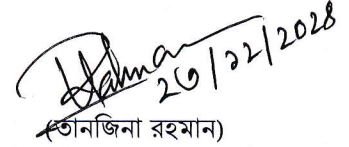 ২৩/১২/২০২৪
(তানজিনা রহমান)